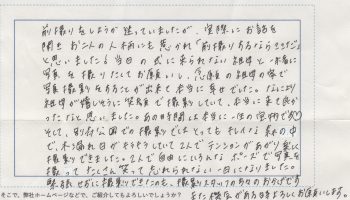 前撮りをしようか迷っていましたが、実際にお話を
聞きお二人の人柄にも惹かれ「前撮りするならここだ」
と思いました。当日の式に来られない祖母と一緒に
写真を撮りたくてお願いし、念願の祖母の家で
写真撮影をすることが出来て本当に幸せでした。なにより
祖母が嬉しそうに笑顔で撮影していて、本当に来て良か
ったなと思いました。あの時間は本当に一生の宝物です。
そして、別府公園での撮影ではとってもキレイな森の中
で、木漏れ日がキラキラしていて2人でテンションがあがり楽しく
撮影できました。2人で自由にいろんなポーズで写真を
撮って たくさん笑って忘れられない一日になりました。
緊張せずに撮影できたのも、撮影スタッフの方々のおかげです
また機会がある時よろしくお願いします。
そこで、弊社ホームページなどで、ご紹介してもよろしいでしょうか？